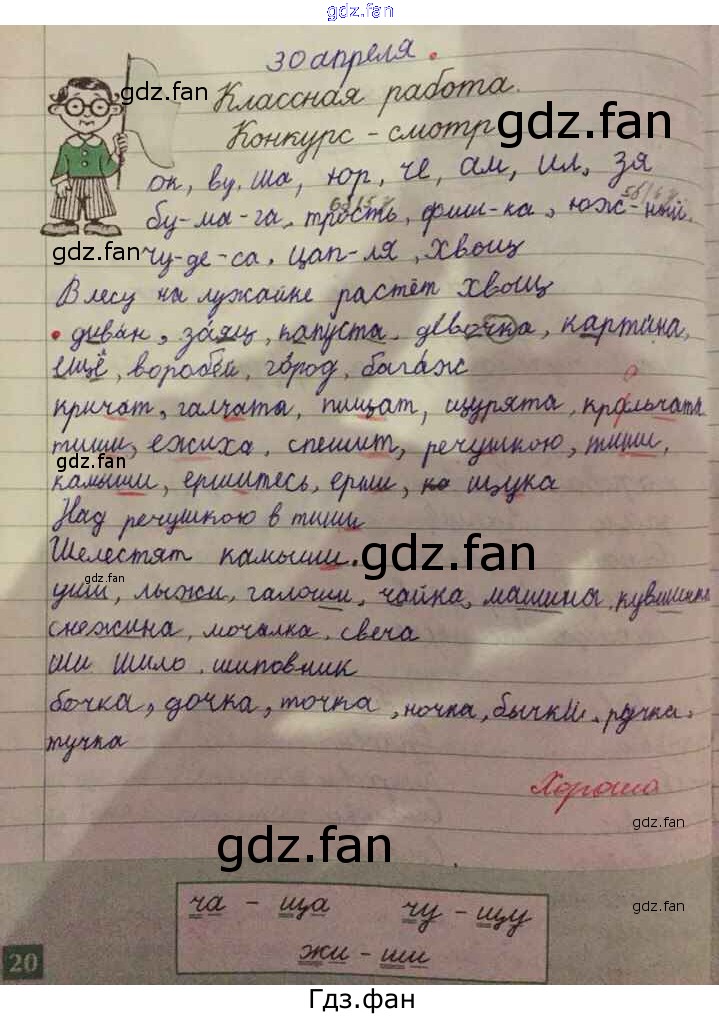 gdz.fan
30 апреля.
gdz.fan
Классная работа.
Конкурс - смотр
gdz.fan
ок, ву, ша, юр, че, ам, ил, зя
бу-ма-га, трость, фиш-ка, юж-ный.
gdz.fan
чу-де-са, цап-ля, хвощ
В лесу на лужайке растёт хвощ
диван, заяц, капуста, девочка, картина,
ещё, воробей, город, багаж
кричат, галчата, пищат, щурята, крольчата
тиши, ежиха, спешит, речушкою, тиши,
gdz.fan
камыши, ершитесь, ерши, щука
Над речушкою в тиши
Шелестят камыши.
gdz.fan
gdz.fan
уши, лыжи, галоши, чайка, машины, кувшинка
снежина, мочалка, свеча
ши шило, шиповник
бочка, дочка, точка, ночка, бычки, ручка,
тучка
Хорошо
gdz.fan
gdz.fan
ча - ща чу - щу
gdz.fan
жи - ши
20
Гдз.фан